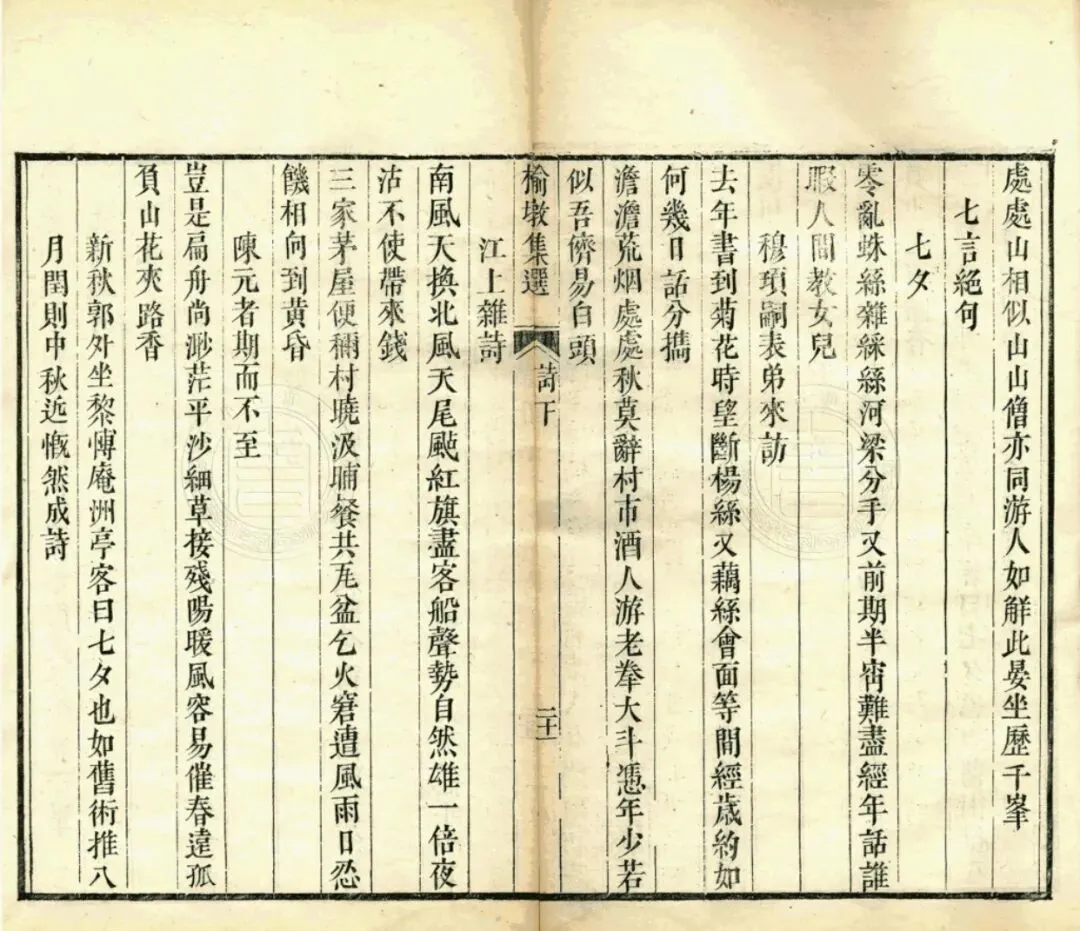 處處山相似山山僧亦同游人如解此晏坐歷千峯
七言絕句
七夕
零亂蛛絲雜綵絲河梁分手又前期半宵難盡經年話誰
暇人間教女兒
穆瑣嗣表弟來訪
去年書到菊花時望斷楊絲又藕絲會面等間經歲約如
何幾日話分攜
澹澹荒烟處處秋莫辭村市酒人游老拳大斗憑年少若
似吾儕易白頭
榆墩集選
詩下
二十一
江上雜詩
南風天換北風天尾颭紅旗盡客船聲勢自然雄一倍夜
沽不使帶來錢
三家茅屋便稱村曉汲晡餐共瓦盆乞火窘遭風雨日忍
饑相向到黃昏
陳元者期而不至
豈是扁舟尚渺茫平沙細草接殘陽暖風容易催春遠孤
負山花夾路香
新秋郭外坐黎博庵洲亭客曰七夕也如舊術推八
月閏則中秋近慨然成詩